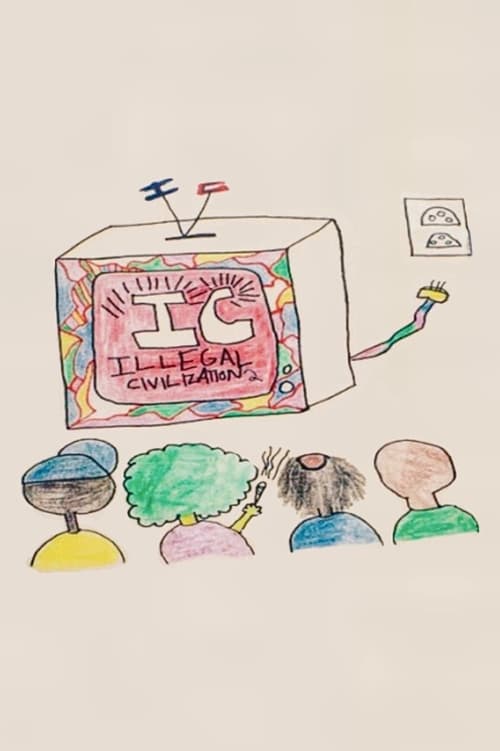 I C
IC
ILLEGAL
CIVILIZATION 2